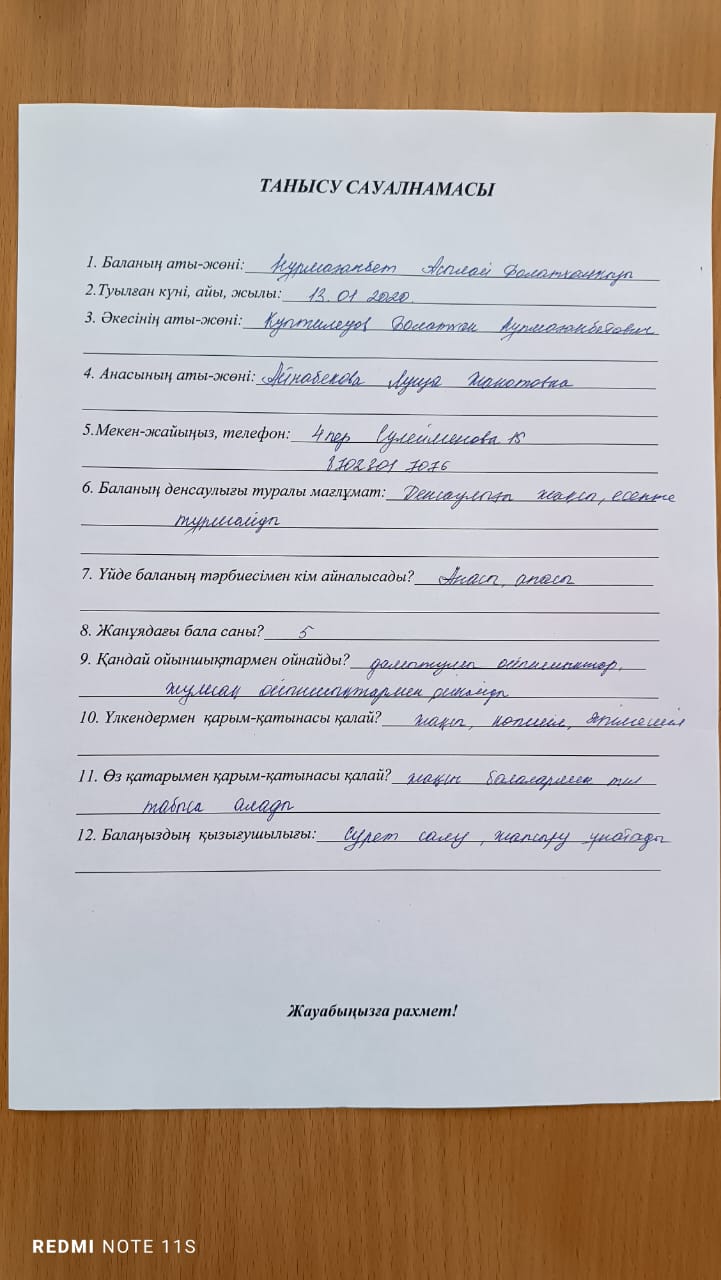 ТАНЫСУ САУАЛНАМАСЫ
1. Баланың аты-жөні: Нұрмағанбет Асылай Болатханқызы
2.Туылған күні, айы, жылы: 13. 01 2020.
3. Әкесінің аты-жөні: Болатхан Нурмаганбетович
4. Анасының аты-жөні: Айнабекова Жанатовна
5.Мекен-жайыңыз, телефон: 4 пер Сулейменова 15
8702801 7076
6. Баланың денсаулығы туралы мағлұмат: Денсаулығы жақсы, есепте
тұрмайды
7. Үйде баланың тәрбиесімен кім айналысады? Анасы, апасы
8. Жанұядағы бала саны? 5
9. Қандай ойыншықтармен ойнайды? дамытушы ойыншықтар,
жұмсақ ойыншықтармен ойнайды
10. Үлкендермен қарым-қатынасы қалай? жақсы, көпшіл,
11. Өз қатарымен қарым-қатынасы қалай? жақсы балалармен тіл
табыса алады
12. Балаңыздың қызығушылығы: Сурет салу, жапсыру ұнатады
Жауабыңызға рахмет!
REDMI NOTE 11S